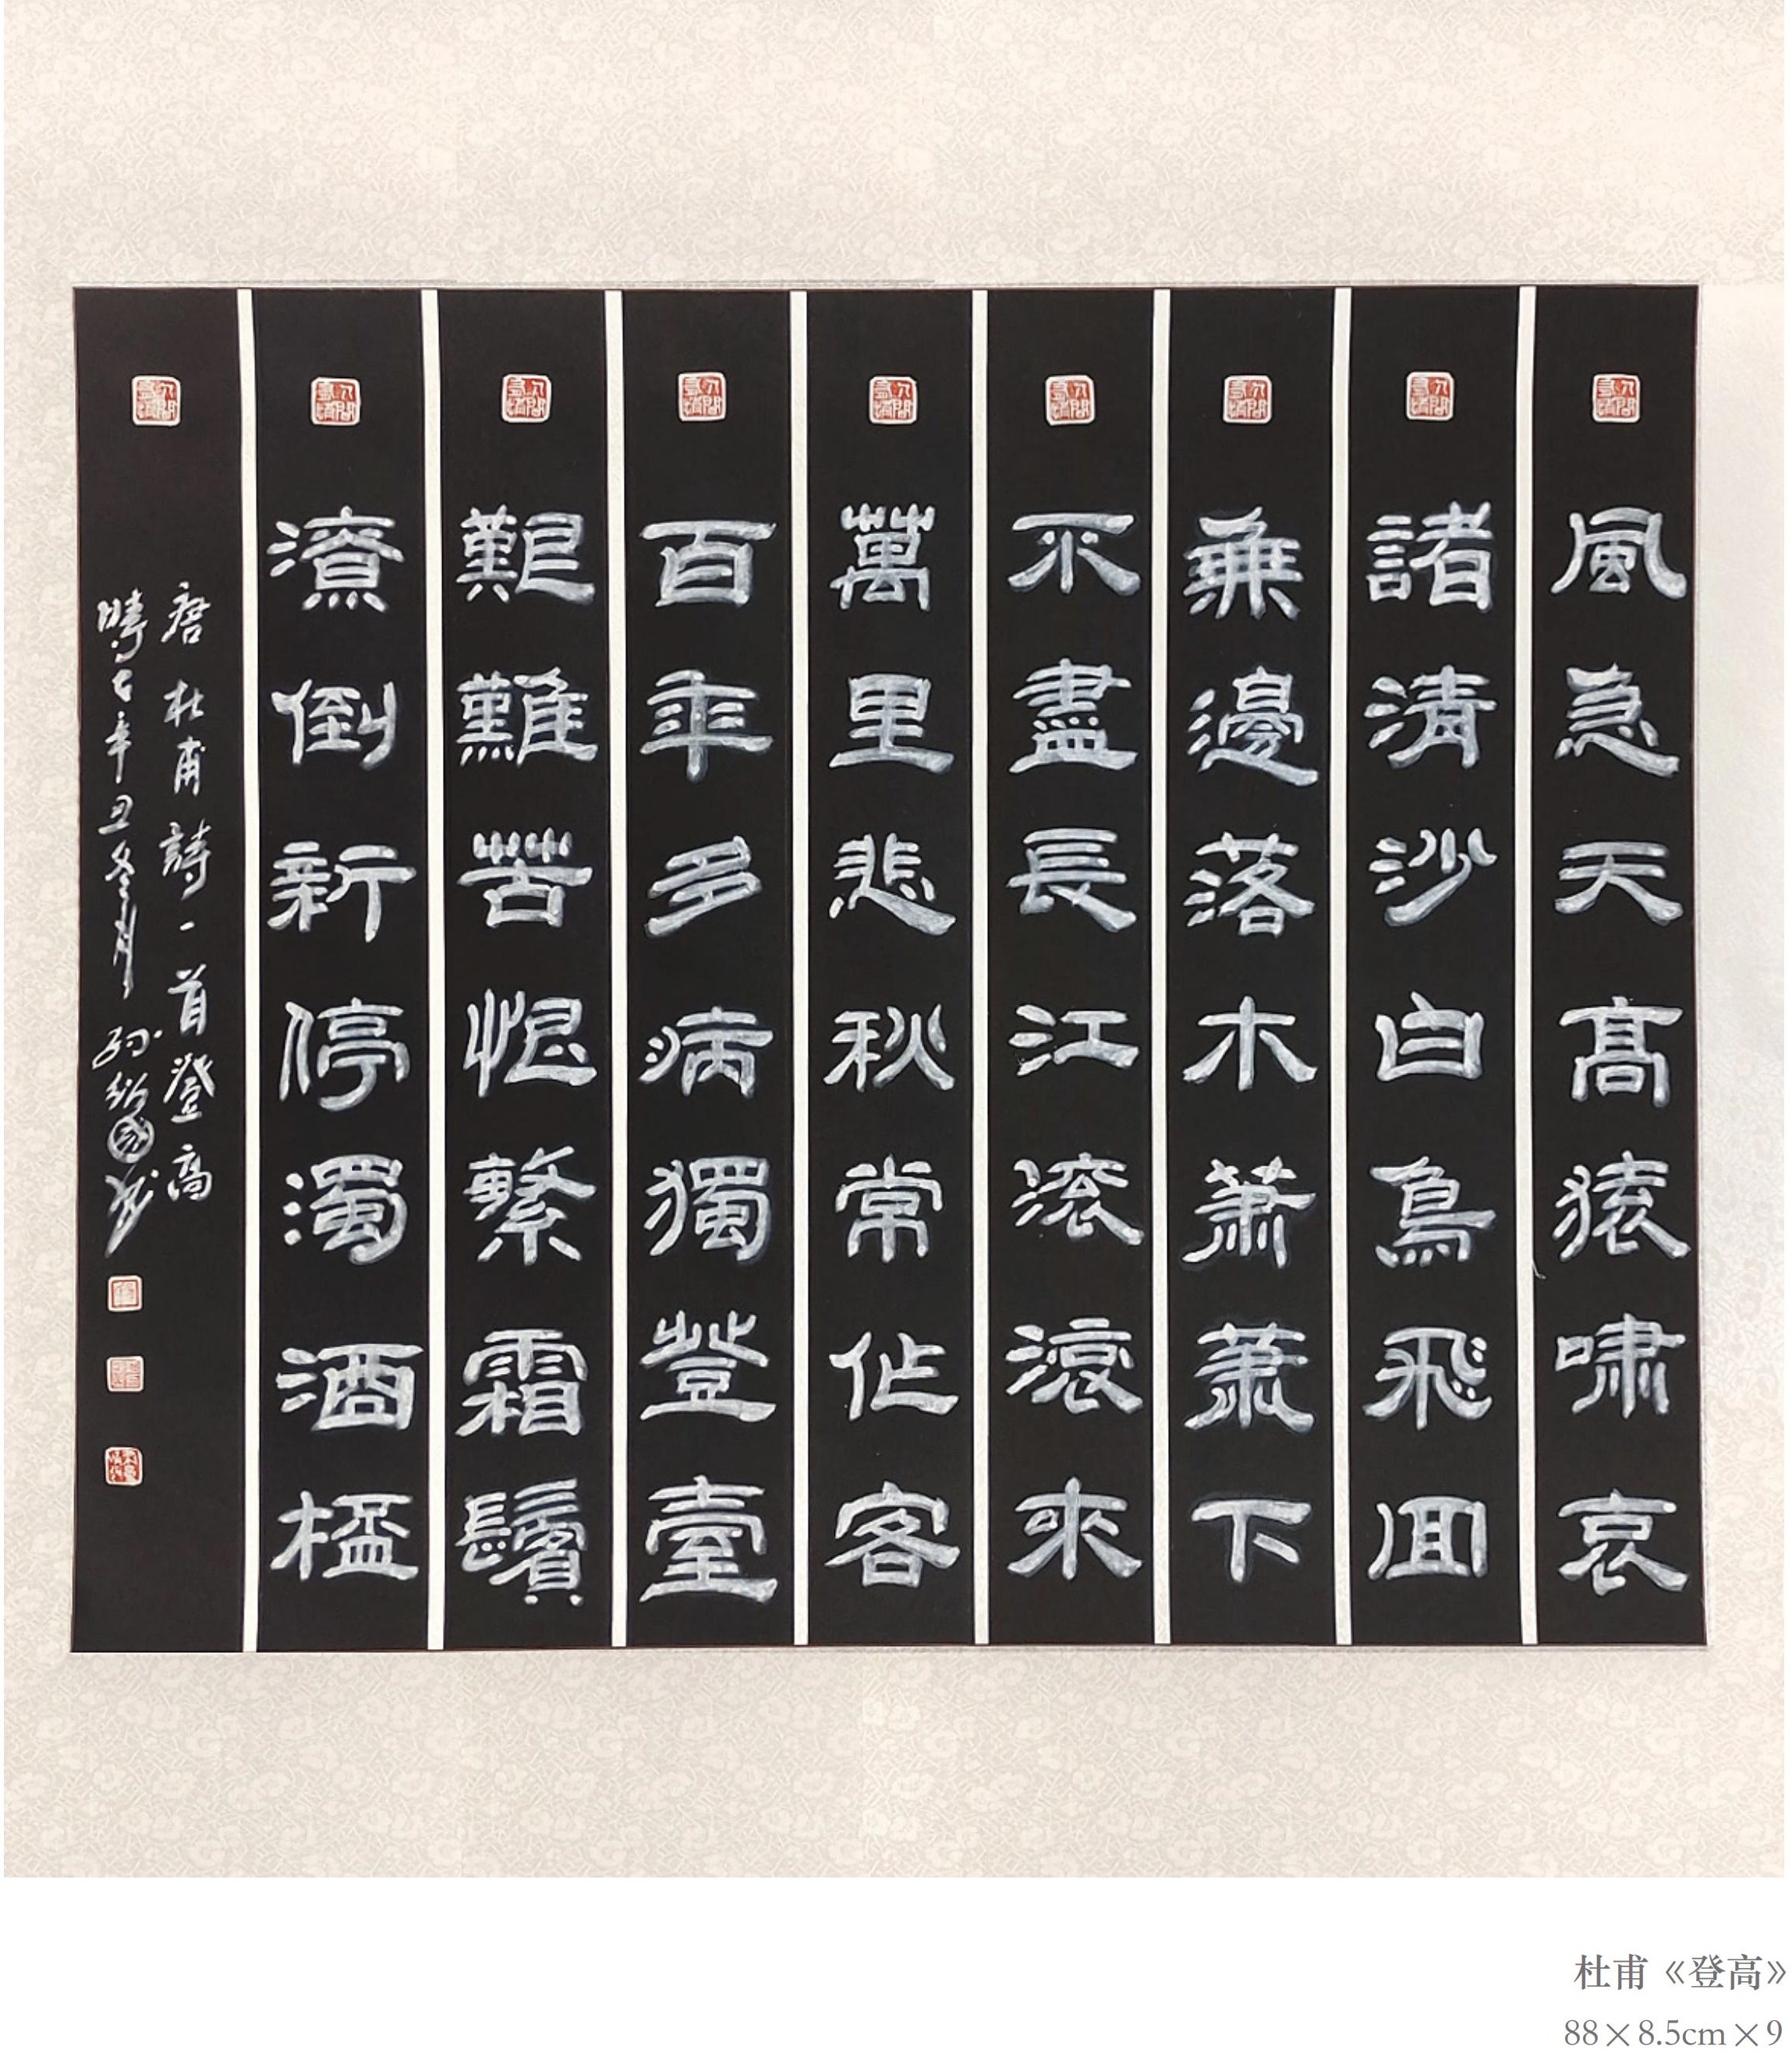 風急天髙猿嘯哀
諸清沙白鳥飛囬
無邊落木蕭蕭下
不盡長江滾滾來
萬里悲秋常作客
百年多病獨登臺
艱難苦恨繁霜鬢
潦倒新停濁酒杯
唐杜甫詩一首登高
時在辛丑冬月孫紹國書
杜甫《登高》
88×8.5cm×9